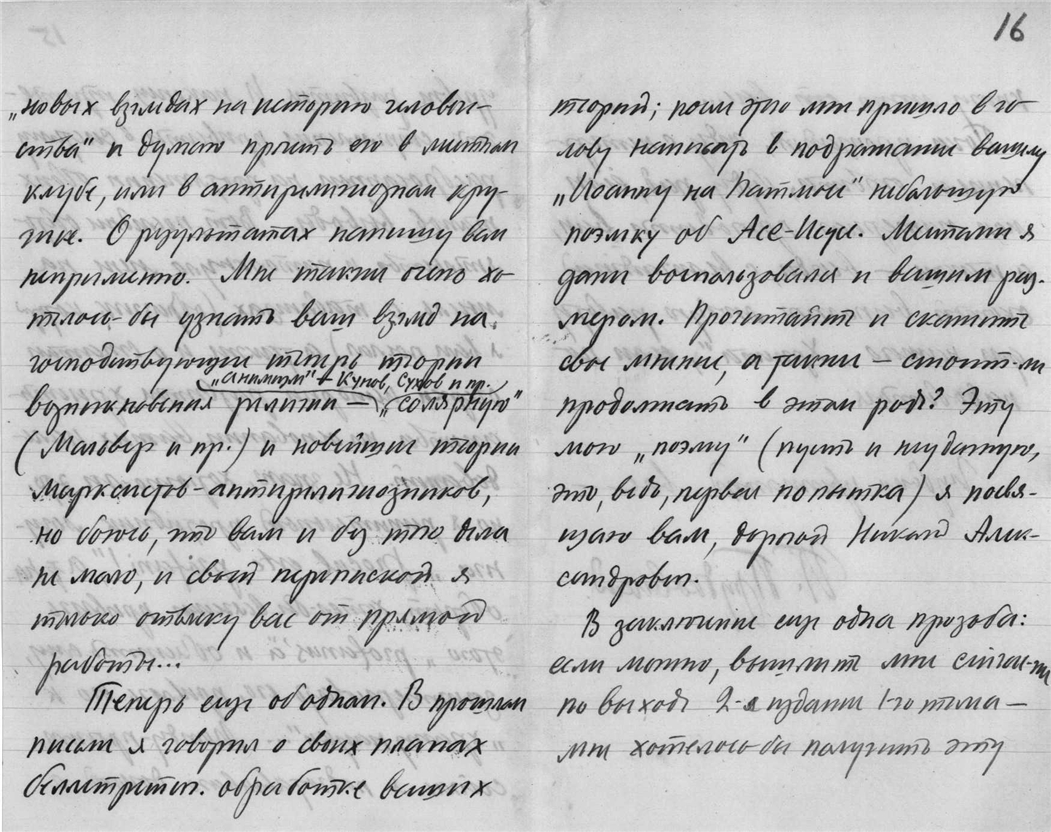 16
„новых взглядах на историю человече-
ства" и думаю прочесть его в местном
клубе, или в антирелигиозном кру-
жке. О результатах напишу вам
непременно. Мне также очень хо-
телось-бы узнать ваш взгляд на
господствующие теперь теории
„анимизм" + Кунов, Сухов и пр.
возникновения религии – „солярную"
(Мальвер и пр.) и новейшие теории
марксистов-антирелигиозников,
но боюсь, что вам и без того дела
не мало, и своей перепиской я
только отвлеку вас от прямой
работы...
Теперь еще об одном. В прошлом
письме я говорил о своих планах
беллетристич. обработке ваших
теорий; после это мне пришло в го-
лову написать в подражание вашему
„Иоанну на Патмосе" небольшую
поэмку об Асе-Исусе. Местами я
даже воспользовался и вашим раз-
мером. Прочитайте и скажите
свое мнение, а также – стоит-ли
продолжать в этом роде? Эту
мою „поэму" (пусть и неудачную,
это, ведь, первая попытка) я посвя-
щаю вам, дорогой Николай Алек-
сандрович.
В заключение еще одна прозьба:
если можно, вышлите мне
по выходе 2-я издания 1-го тома –
мне хотелось бы получить эту